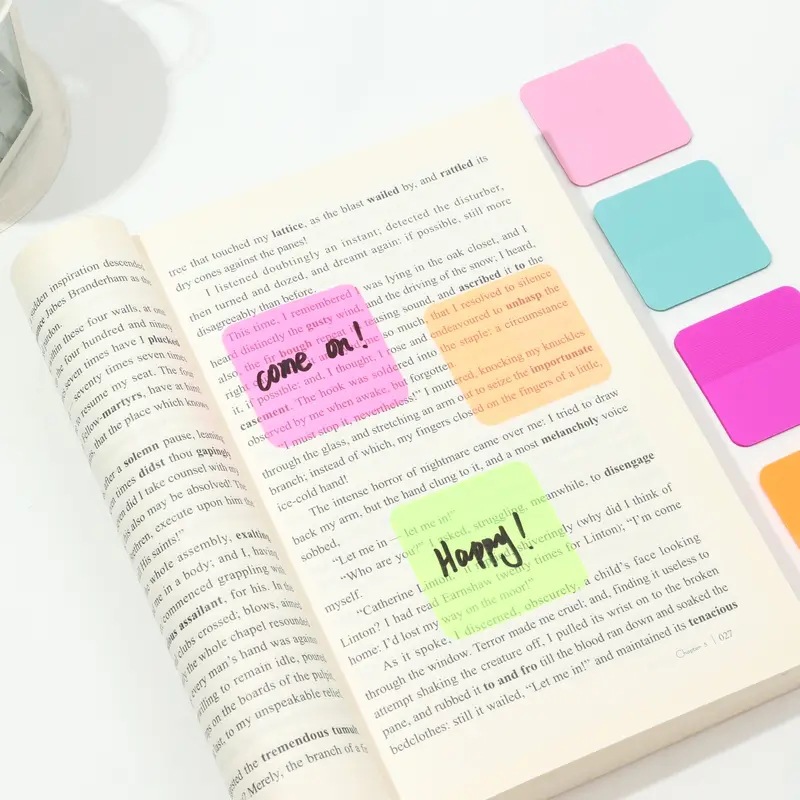 udden inspiration descended,
nce Jabes Branderham as the
pardon.
thin these four walls, at one
the four hundred and ninety
to seven times have I plucked
seventy times seven times
to resume my seat. The four
ellow-martyrs, have at him
s, that the place which know
fter a solemn pause, leaning
ent times didst thou gapingly
ven did I take counsel with my
is also may be absolved. The
ethren, execute upon him the
His saints!”
whole assembly, exalting
me in a body; and I, having
commenced grappling with
ous assailant, for his. In the
clubs crossed; blows, aimed
the whole chapel resounded
every man's hand was against
illing to remain idle, poured
s on the boards of the pulpit
ast, to my unspeakable relief,
sted the tremendous tumult
? Merely, the branch of a
tree that touched my lattice, as the blast wailed by, and rattled its
dry cones against the panes!
I listened doubtingly an instant; detected the disturber,
then turned and dozed, and dreamt again: if possible, still more
disagreeably than before.
This time, I remembered I was lying in the oak closet, and I
heard distinctly the gusty wind, and the driving of the snow; I heard,
also, the fir bough repeat its teasing sound, and ascribed it to the
right so much that I resolved to silence
it, if possible; and, I thought, I rose and endeavoured to unhasp the
casement. The hook was soldered into the staple: a circumstance
observed by me when awake, but forgotten.
“I must stop it, nevertheless!” I muttered, knocking my knuckles
through the glass, and stretching an arm out to seize the importunate
branch; instead of which, my fingers closed on the fingers of a little,
ice-cold hand!
The intense horror of nightmare came over me: I tried to draw
back my arm, but the hand clung to it, and a most melancholy voice
sobbed,
“Let me in — let me in!”
“Who are you?” I asked, struggling, meanwhile, to disengage
myself.
“Catherine Linton,” it shiveringly (why did I think of
Linton? I had read Earnshaw twenty times for Linton); “I'm come
home: I'd lost my way on the moor!”
As it spoke, I discerned, obscurely, a child's face looking
through the window. Terror made me cruel; and, finding it useless to
attempt shaking the creature off, I pulled its wrist on to the broken
pane, and rubbed it to and fro till the blood ran down and soaked the
bedclothes: still it wailed, “Let me in!” and maintained its tenacious
come on!
Happy!
Chapter 3 | 027